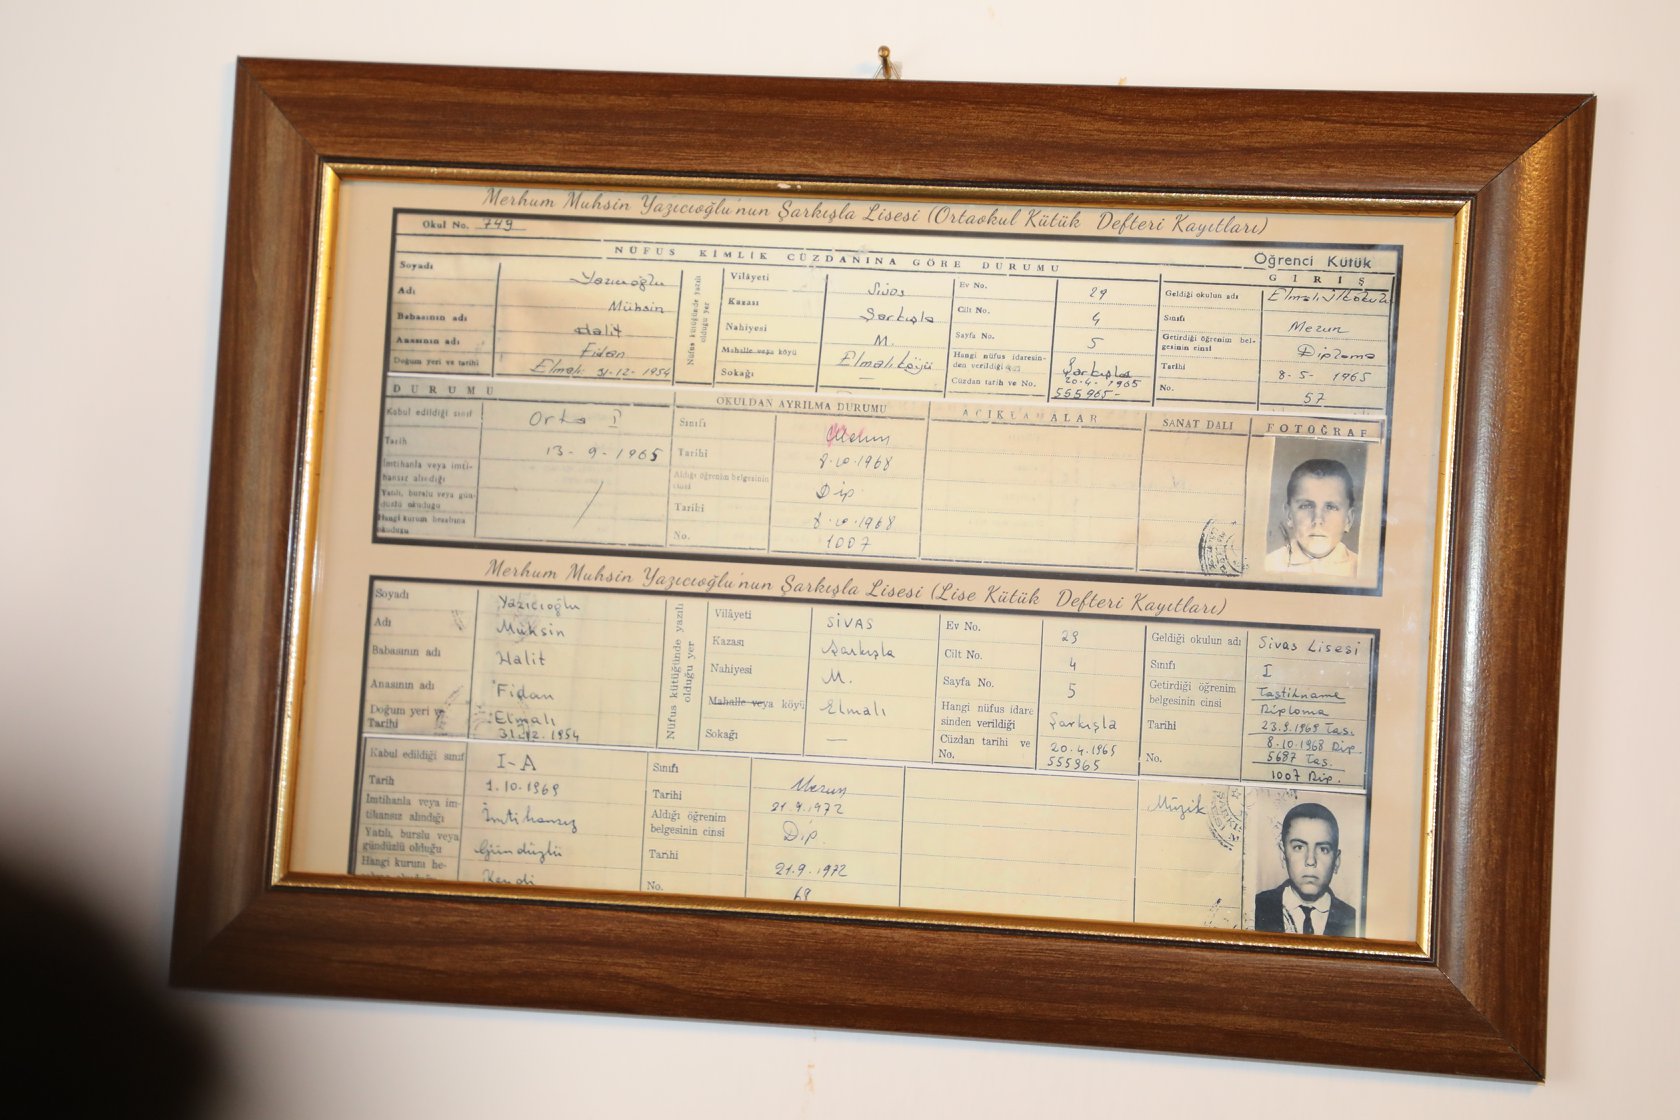 Merhum Muhsin Yazıcıoğlu'nun Şarkışla Lisesi (Ortaokul Kütük Defteri Kayıtları)
Okul No. 749
Öğrenci Kütük
NÜFUS KİMLİK CÜZDANINA GÖRE DURUMU
GİRİŞ
Soyadı Yazıcıoğlu
Adı Mühsin
Babasının adı Halit
Anasının adı Fidan
Doğum yeri ve tarihi Elmalı 31-12-1954
Nüfus kütüğünde yazılı olduğu yer
Vilâyeti Sivas
Kazası Şarkışla
Nahiyesi M.
Mahalle veya köyü Elmalı köyü
Sokağı —
Ev No. 29
Cilt No. 4
Sayfa No. 5
Hangi nüfus idaresin-
den verildiği Şarkışla
Cüzdan tarih ve No. 20-4-1965
555965-
Geldiği okulun adı Elmalı İlkokulu
Sınıfı Mezun
Getirdiği öğrenim bel-
gesinin cinsi Diploma
Tarihi 8-5-1965
No. 57
DURUMU
Kabul edildiği sınıf Orta I
Tarih 13-9-1965
İmtihanla veya imti-
hansız alındığı
Yatılı, burslu veya gün-
düzlü okuduğu
Hangi kurum hesabına
okuduğu
OKULDAN AYRILMA DURUMU
Sınıfı Mezun
Tarihi 8-10-1968
Aldığı öğrenim belgesinin
cinsi Dip
Tarihi 8-10-1968
No. 1007
AÇIKLAMALAR
SANAT DALI
FOTOĞRAF
Merhum Muhsin Yazıcıoğlu'nun Şarkışla Lisesi (Lise Kütük Defteri Kayıtları)
Soyadı Yazıcıoğlu
Adı Mühsin
Babasının adı Halit
Anasının adı Fidan
Doğum yeri ve Elmalı
Tarihi 31.12.1954
Nüfus kütüğünde yazılı
olduğu yer
Vilâyeti SİVAS
Kazası Şarkışla
Nahiyesi M.
Mahalle veya köyü Elmalı
Sokağı —
Ev No. 29
Cilt No. 4
Sayfa No. 5
Hangi nüfus idare
sinden verildiği Şarkışla
Cüzdan tarihi ve 20.4.1965
No. 555965
Geldiği okulun adı Sivas Lisesi
Sınıfı I
Getirdiği öğrenim Tastikname
belgesinin cinsi Diploma
Tarihi 23.9.1969 Tas.
8.10.1968 Dip.
No. 5687 Tas.
1007 Dip.
Kabul edildiği sınıf I-A
Tarih 1.10.1969
İmtihanla veya im-
tihansız alındığı İmtihansız
Yatılı, burslu veya
gündüzlü olduğu Gündüzlü
Hangi kurum he- Kendi
Sınıfı Mezun
Tarihi 21.9.1972
Aldığı öğrenim
belgesinin cinsi Dip.
Tarihi 21.9.1972
No. 69
Müzik